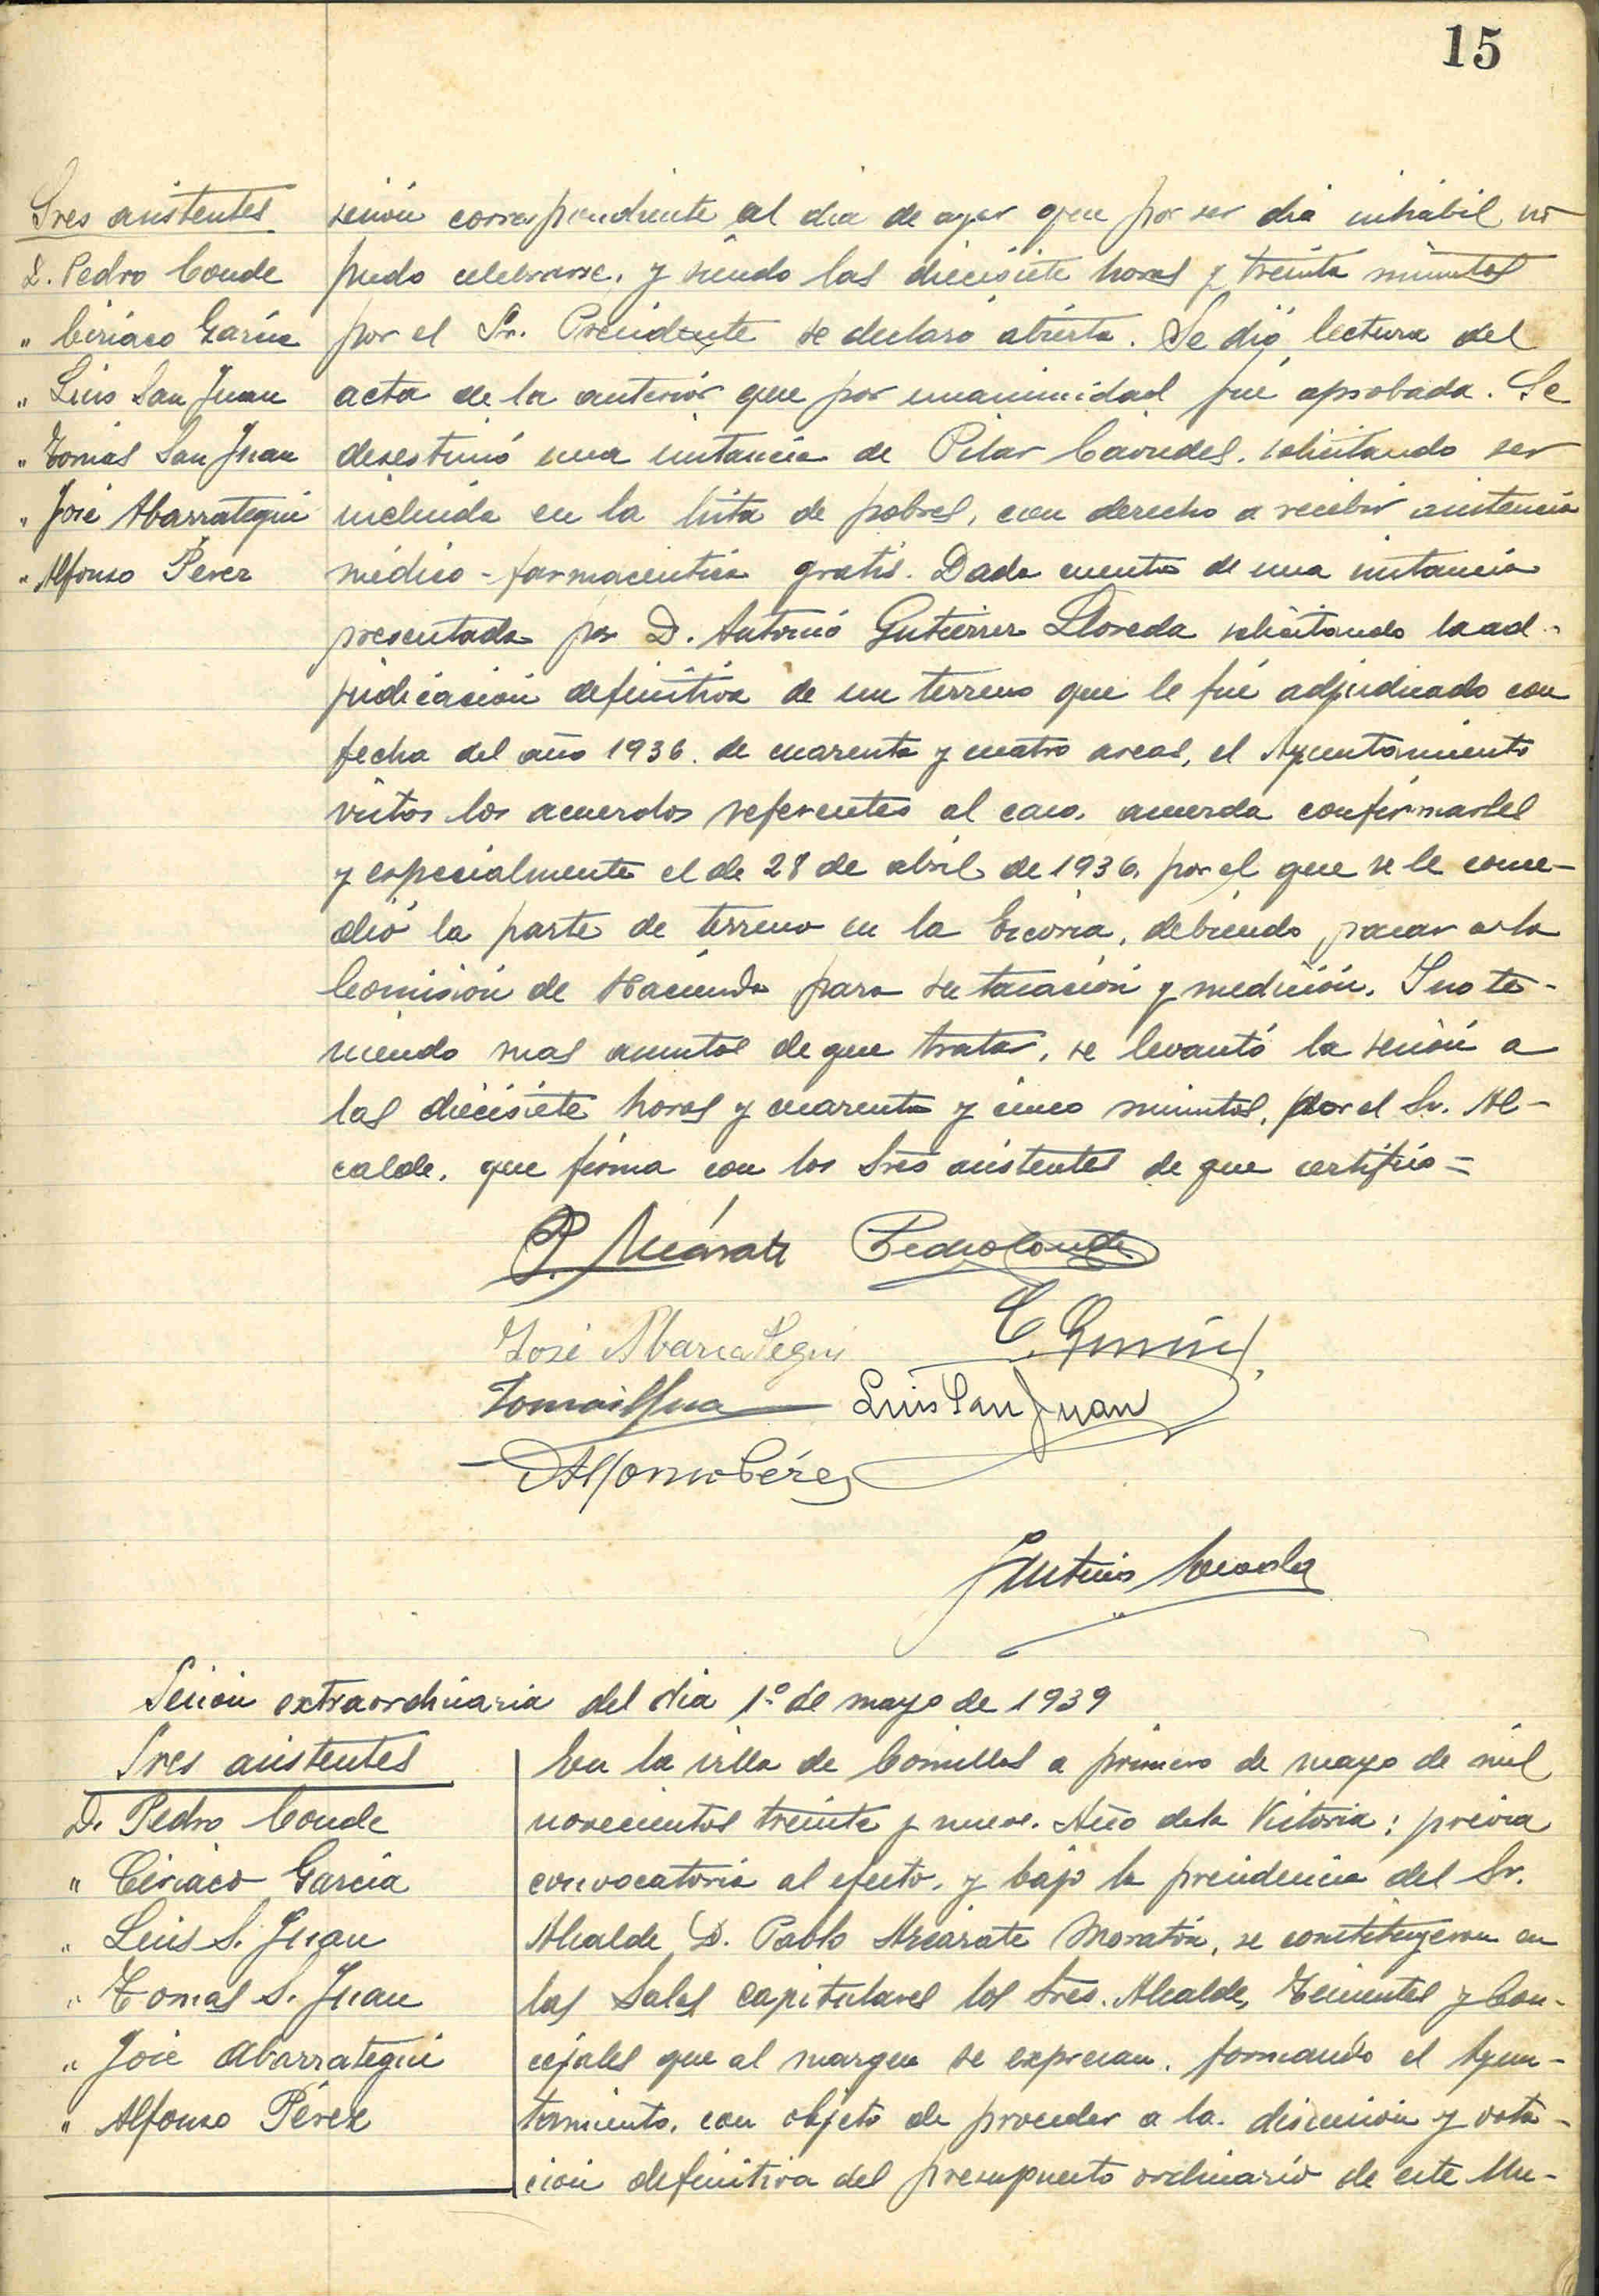 15
Sres asistentes
D. Pedro Conde
" Ciriaco García
" Luis San Juan
" Tomás San Juan
" José Abarrategui
" Alfonso Pérez
sesión correspondiente al dia de ayer que por ser dia inhábil no
pudo celebrarse, y siendo las diecisiete horas y treinta minutos
por el Sr. Presidente se declaró abierta. Se dió lectura del
acta de la anterior que por unanimidad fué aprobada. Se
desestimó una instancia de Pilar solicitando ser
incluida en la lista de pobres, con derecho a recibir asistencia
médico-farmaceutica gratis. Dada cuenta de una instancia
presentada por D. Antonio Gutierrez Lloreda solicitando la ad-
judicación definitiva de un terreno que le fué adjudicado con
fecha del año 1936. de cuarenta y cuatro areas, el Ayuntamiento
vistos los acuerdos referentes al caso, acuerda confirmarles
y especialmente el de 28 de abril de 1936, por el que se le conce-
dió la parte de terreno en la, debiendo pasar a la
Comisión de Hacienda para su tasación y medición. Y no te-
niendo mas asuntos de que tratar, se levantó la sesión a
las diecisiete horas y cuarenta y cinco minutos, por el Sr. Al-
calde, que firma con los Sres asistentes de que certifico=
P. Azcárate Pedro Conde
José Abarrategui
Luis San Juan
Alfonso Pérez
Sesión extraordinaria del dia 1º de mayo de 1939
Sres asistentes
D. Pedro Conde
" Ciriaco García
" Luis S. Juan
" Tomás S. Juan
" José Abarrategui
" Alfonso Pérez
En la villa de Comillas a primero de mayo de mil
novecientos treinta y nueve. Año de la Victoria; previa
convocatoria al efecto, y bajo la presidencia del Sr.
Alcalde D. Pablo Azcárate Moratín, se constituyeron en
las Salas Capitulares los Sres. Alcalde, Tenientes y Con-
cejales que al margen se expresan, formando el Ayun-
tamiento, con objeto de proceder a la discusión y vota-
ción definitiva del presupuesto ordinario de este Mu-